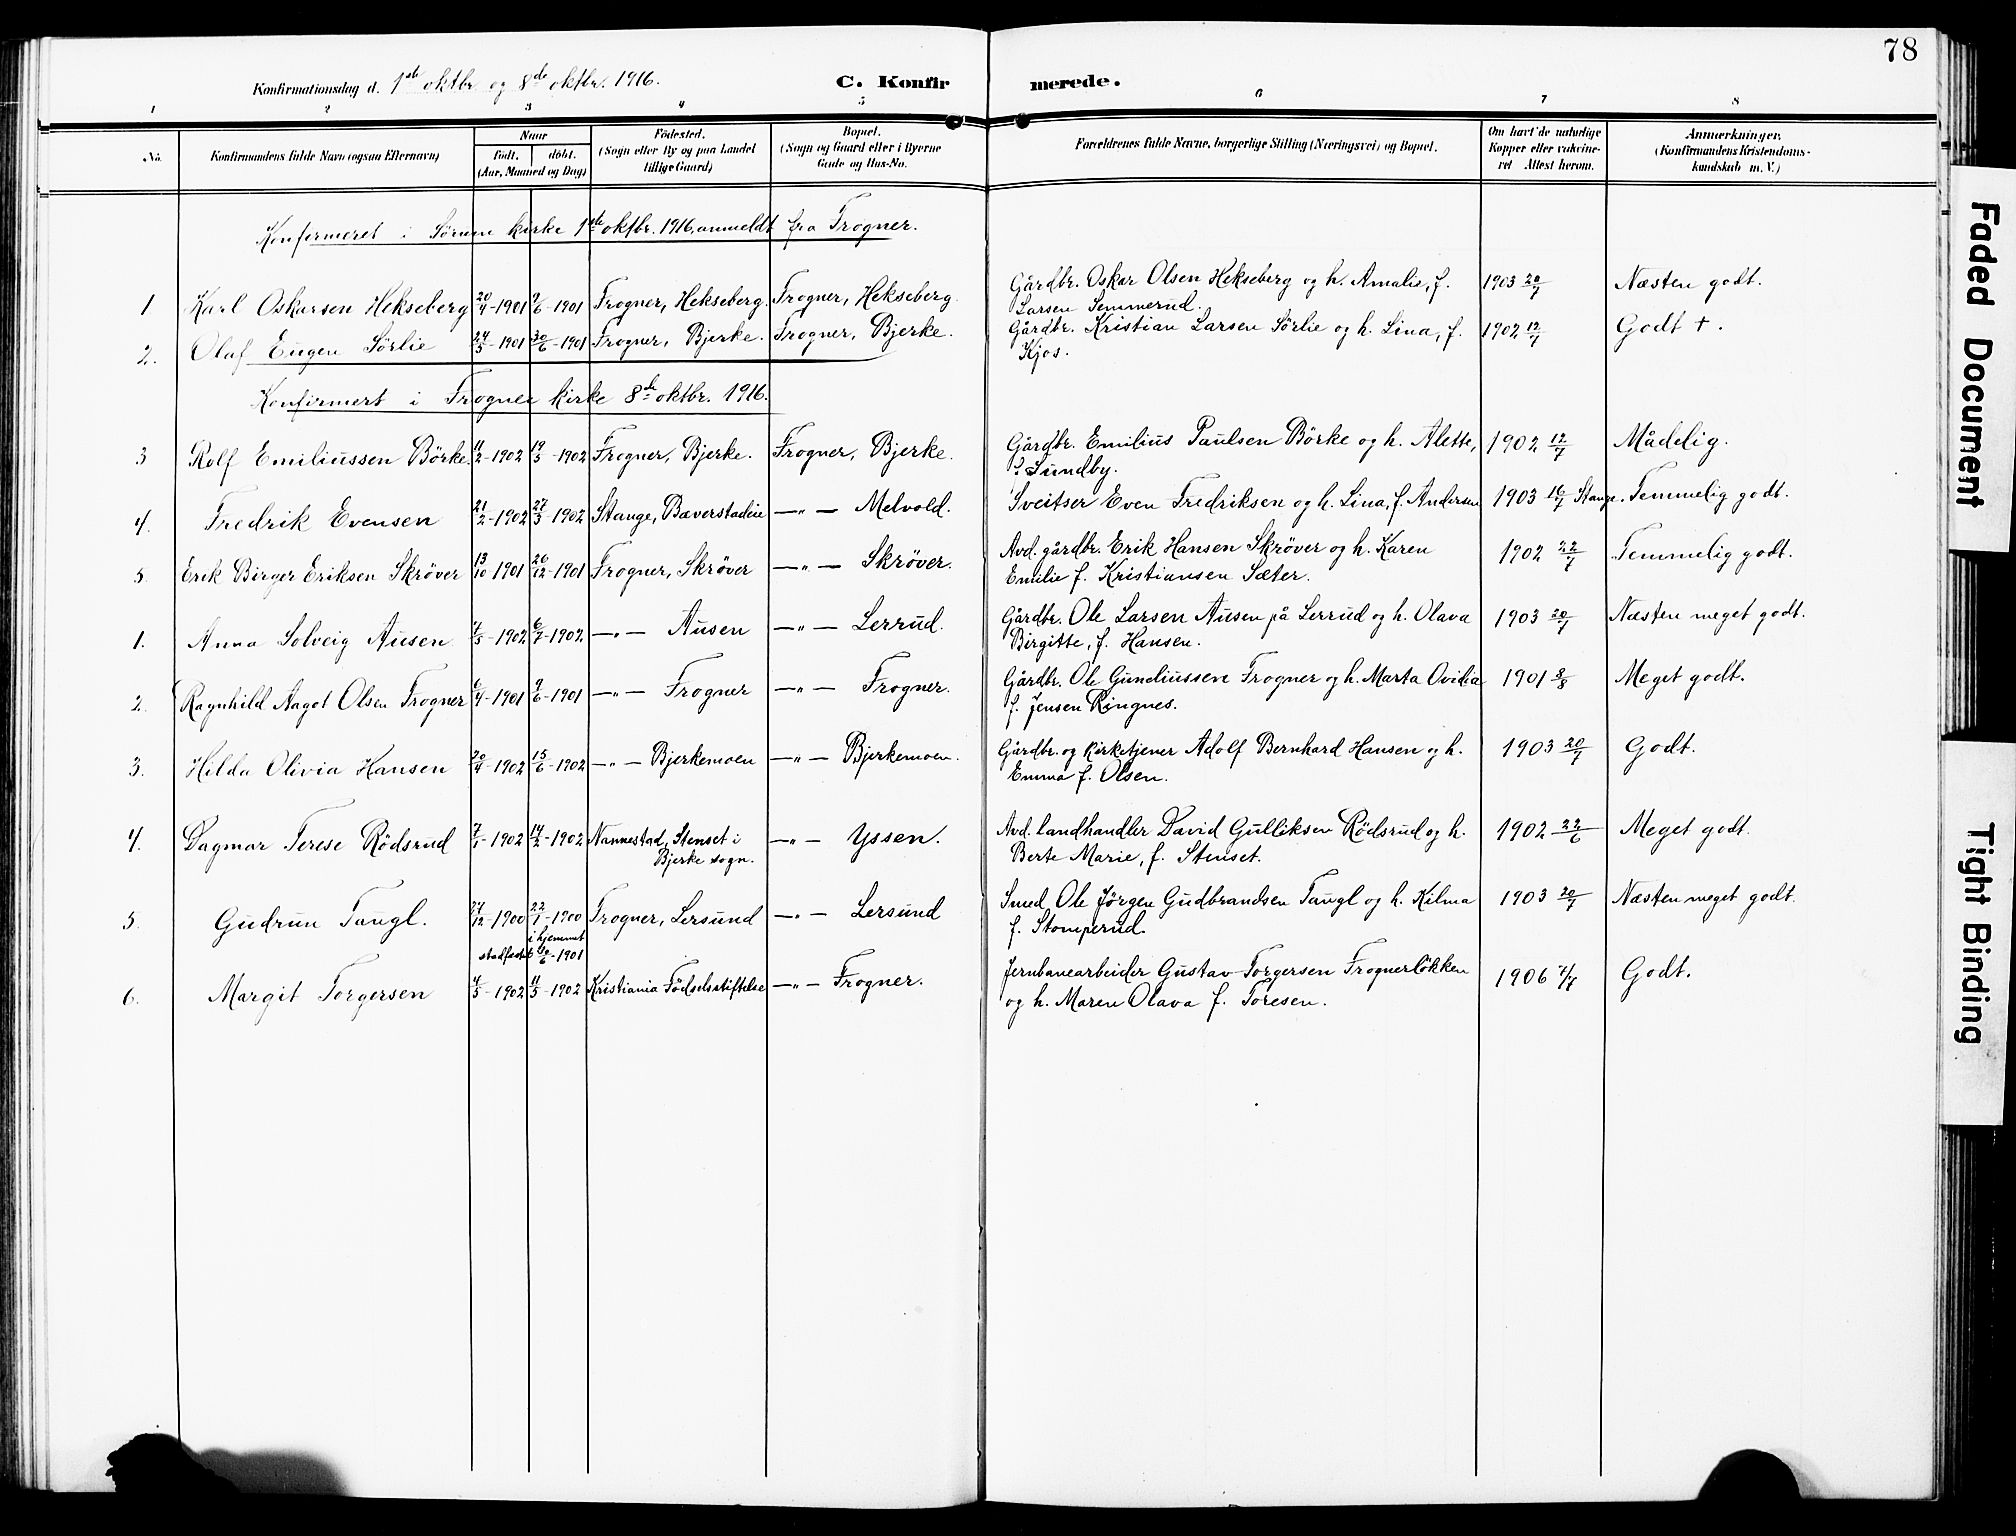 78
Konfirmationsdag d. 1ste oktbr. og 8de oktbr. 1916.
C. Konfirmerede.
1 2 3 4 5 6 7 8
No.
Konfirmandens fulde Navn (ogsaa Efternavn)
Naar
født. døbt.
(Aar, Maaned og Dag)
Fødested.
(Sogn eller By og paa Landet
tillige Gaard)
Bopæl.
(Sogn og Gaard eller i Byerne
Gade og Hus-No.
Forældrenes fulde Navne, borgerlige Stilling (Næringsvei) og Bopæl.
Om havt de naturlige
Kopper eller vakcine-
ret Attest herom.
Anmærkninger.
(Konfirmandens Kristendoms-
kundskab m. V.)
Konfirmeret i Sørum kirke 1ste oktbr. 1916, anmeldt fra Frogner.
1 Karl Oskarsen Hekseberg 20/4-1901 9/6-1901 Frogner, Hekseberg. Frogner, Hekseberg. Gårdbr. Oskar Olsen Hekseberg og h. Amalie, f. 1903 20/7 Næsten godt.
Larsen Semmerud.
2. Olaf Eugen Sörlie 24/5-1901 30/6-1901 Frogner, Bjerke. Frogner, Bjerke. Gårdbr. Kristian Larsen Sörlie og h. Lina, f. 1902 12/7 Godt +.
Kjos.
Konfirmert i Frogner kirke 8de oktbr. 1916.
3 Rolf Emiliussen Börke. 11/2-1902 19/5-1902 Frogner, Bjerke. Frogner, Bjerke. Gårdbr. Emilius Paulsen Börke og h. Alette, 1902 12/7 Mådelig.
f. Sundby.
4. Fredrik Evensen 21/2-1902 27/3-1902 Stange, Bæverstadeie —„— Melvold. Sveitser Even Fredriksen og h. Lina, f. Andersen 1903 16/7 Stange. Temmelig godt.
5. Erik Birger Eriksen Skröver 13/10 1901 26/12-1901 Frogner, Skröver —„— Skröver. Avd. gårdbr. Erik Hansen Skröver og h. Karen 1902 22/7 Temmelig godt.
Emilie f. Kristiansen Sæter.
1. Anna Solveig Ausen 7/5-1902 6/7-1902 —„— Ausen —„— Lerrud. Gårdbr. Ole Larsen Ausen på Lerrud og h. Olava 1903 20/7 Næsten meget godt.
Birgitte, f. Hansen.
2. Ragnhild Aagot Olsen Frogner 6/4-1901 9/6-1901 —„— Frogner —„— Frogner. Gårdbr. Ole Gundiussen Frogner og h. Marta Ovidia 1901 3/8 Meget godt.
f. Jensen Ringnes.
3. Hilda Olivia Hansen 20/4-1902 15/6-1902 —„— Bjerkemoen —„— Bjerkemoen. Gårdbr. og kirketjener Adolf Bernhard Hansen og h. 1903 20/7 Godt.
Emma f. Olsen.
4. Dagmar Terese Rödsrud 7/1-1902 14/2-1902 Nannestad, Stenset i —„— Yssen. Avd. landhandler David Gulliksen Rödsrud og h. 1902 22/6 Meget godt.
Bjerke sogn. Berte Marie, f. Stenset.
5. Gudrun Tangl. 27/12-1900 22/1-1900 Frogner, Lersund —„— Lersund Smed Ole Jörgen Gudbrandsen Tangl og h. Kilma 1903 20/7 Næsten meget godt.
i hjemmet f. Stomperud.
stadfæstet 30/6-1901
6. Margit Torgersen 4/5-1902 11/5-1902 Kristiania Födselsstiftelse —„— Frogner. Jernbanearbeider Gustav Torgersen Frognerløkken 1906 7/7 Godt.
og h. Maren Olava f. Toresen.
Faded Document
Tight Binding